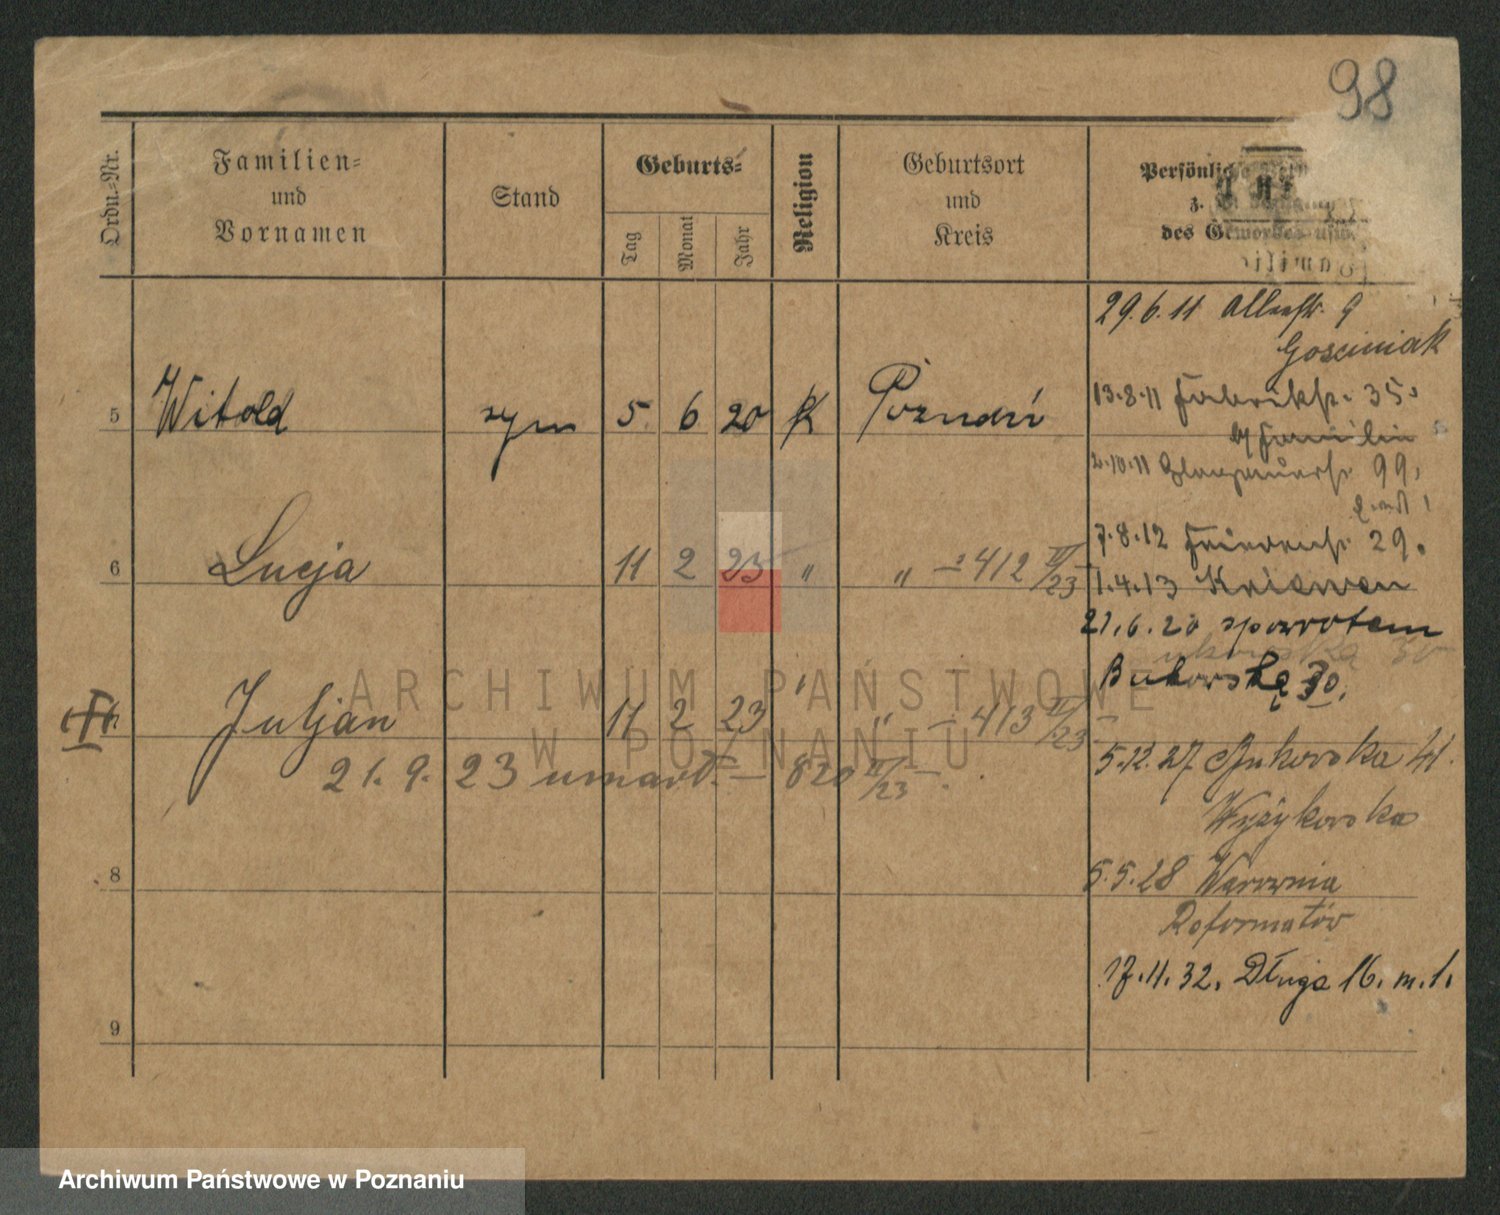 98
Ordn.-Nr.
Familien-
und
Vornamen
Stand
Geburts-
Tag
Monat
Jahr
Religion
Geburtsort
und
Kreis
Persönliche
z.
des Gewerbes usw.
29.6.11 9
Gościniak
5 Witold syn 5. 6 20 K Poznań
13.8.11 Fabrikstr. 35.
b/ Familie
2.10.11 99,
6 Lucja 11 2 23 " " – 412 II/23 –
7.8.12 29.
1.4.13
21.6.20 spowrotem
Bukowska 30.
Juljan 11 2 23 " " – 413 II/23 –
21. 9. 23 umarł. – 820 /23 – .
5.12.27 Bukowska 41.
Wyżykowska
8
5.5.28 Warownia
Reformatów
17.11.32. Długa 16. m.1.
9
ARCHIWUM PAŃSTWOWE
W POZNANIU
Archiwum Państwowe w Poznaniu